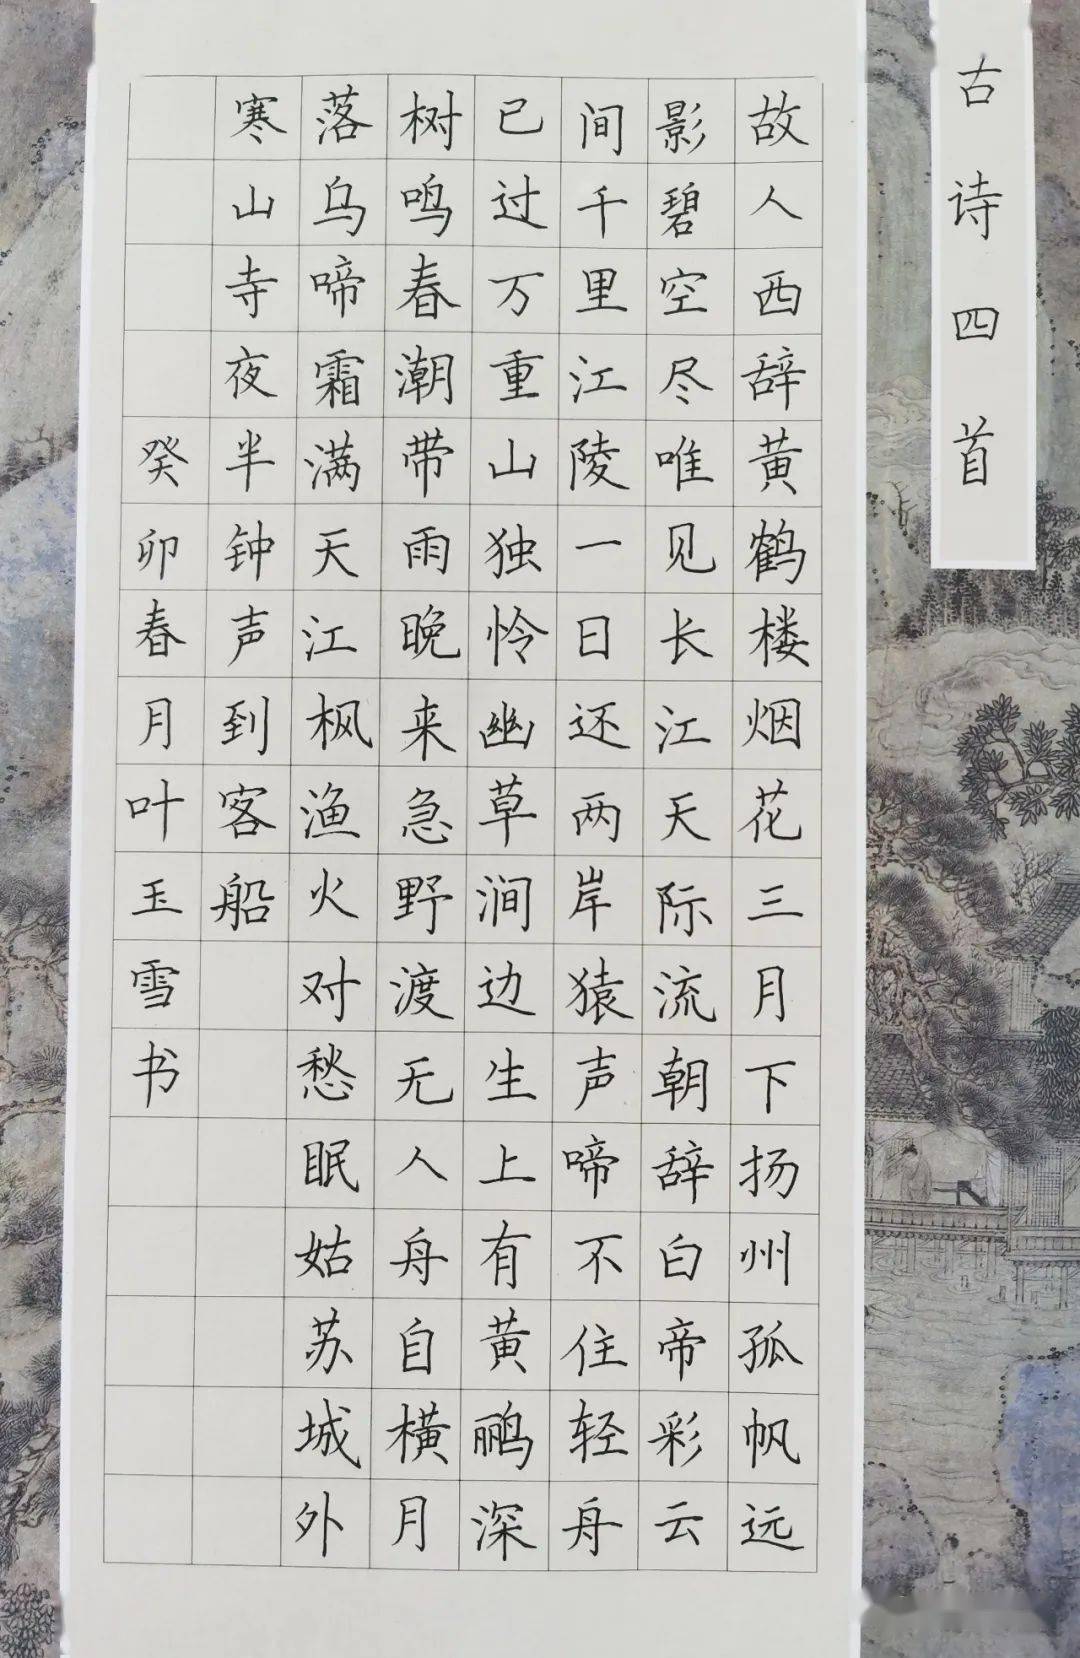 古诗四首
故人西辞黄鹤楼烟花三月下扬州孤帆远
影碧空尽唯见长江天际流朝辞白帝彩云
间千里江陵一日还两岸猿声啼不住轻舟
已过万重山独怜幽草涧边生上有黄鹂深
树鸣春潮带雨晚来急野渡无人舟自横月
落乌啼霜满天江枫渔火对愁眠姑苏城外
寒山寺夜半钟声到客船
癸卯春月叶玉雪书